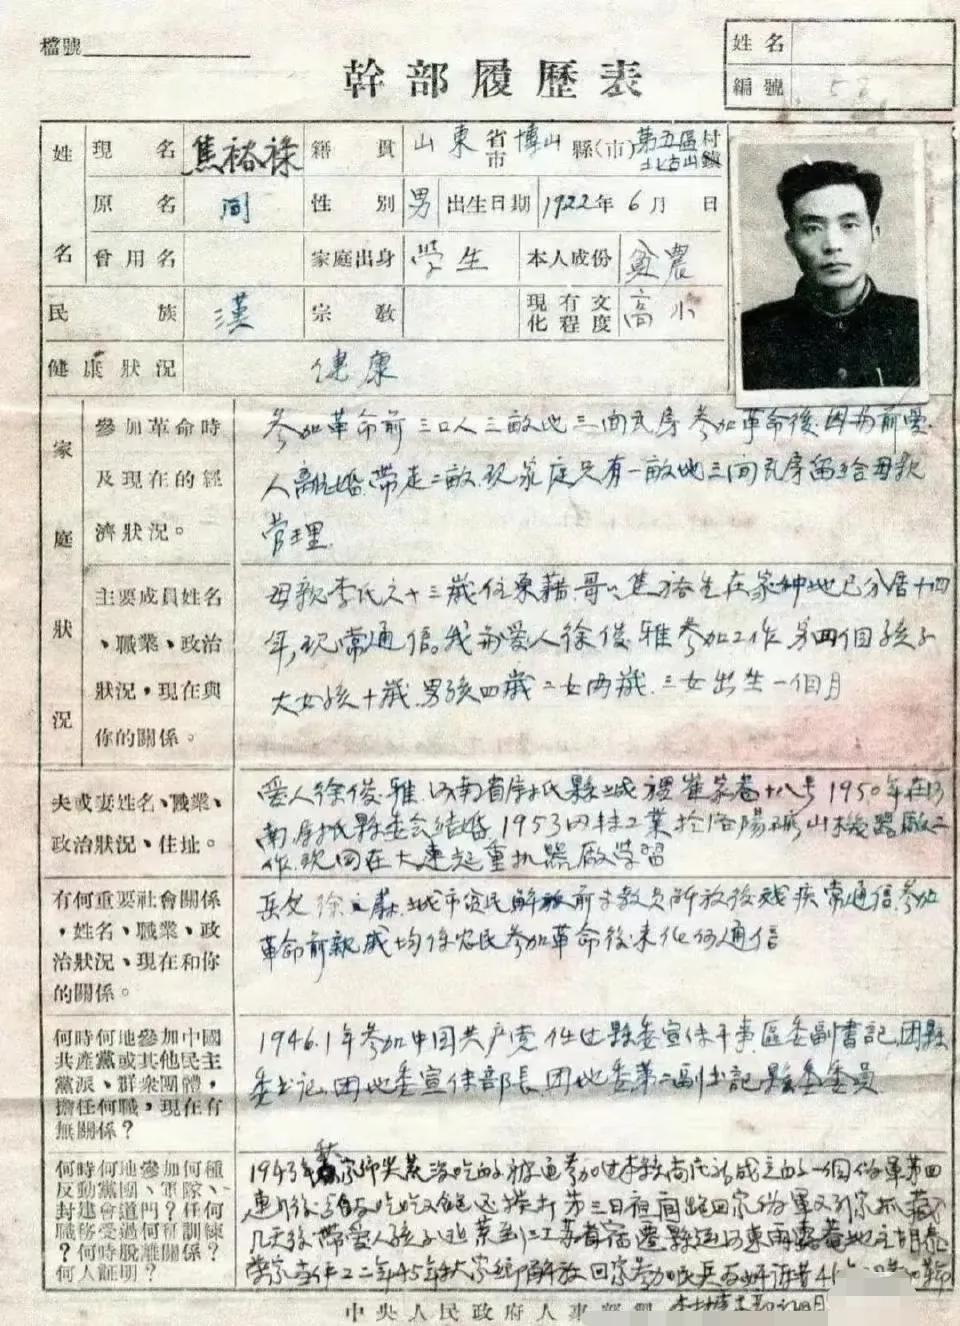 檔號
姓名
編號
幹部履歷表
姓名
現名 焦裕禄 籍貫 山東省市 博山縣(市) 第五區 北古山村鎮
原名 同 性別 男 出生日期 1922年6月 日
曾用名 家庭出身 學生 本人成份 貧農
民族 漢 宗教 現有文化程度 高小
健康狀況 健康
家庭狀況
參加革命時及現在的經濟狀況。
参加革命前三口人三畝地三间瓦房参加革命後.因为前爱
人離婚.帶走二畝.现家庭只有一畝地三间瓦房留给母親
管理.
主要成員姓名、職業、政治狀況,現在與你的關係。
母親李氏六十三歲.住原籍.哥哥焦裕生在家种地已分居十四
年,现常通信。我和爱人徐俊雅参加工作.另四個孩子
大女孩十歲.男孩四歲二女两歲.三女出生一個月
夫或妻姓名、職業、政治狀況、住址。
爱人徐俊雅.河南省尉氏縣城 十八号1950年在河
南尉氏縣委会结婚.1953 工業於洛陽礦山機器廠工
作.现同在大連起重机器廠学習
有何重要社會關係,姓名、職業、政治狀況、現在和你的關係。
岳父徐 城市貧民解放前 教員解放後残疾常通信.参加
革命前親戚均係农民参加革命後未任何通信
何時何地參加中國共產黨或其他民主黨派、羣衆團體,擔任何職,現在有無關係?
1946.1年参加中国共产党.任过縣委宣传干事.區委副書記.团縣
委书记.团地委宣传部長.团地委第二副书記.縣委委員
何時何地參加何種反動黨團、軍隊、封建會道門?任何職務受過何種訓練?何時脫離關係?何人証明?
1943年
連
几天後.帶爱人孩子逃荒到江苏省宿遷縣 地主胡泰
榮家 二年45年秋家鄉解放回家参加民兵
中央人民政府人事部